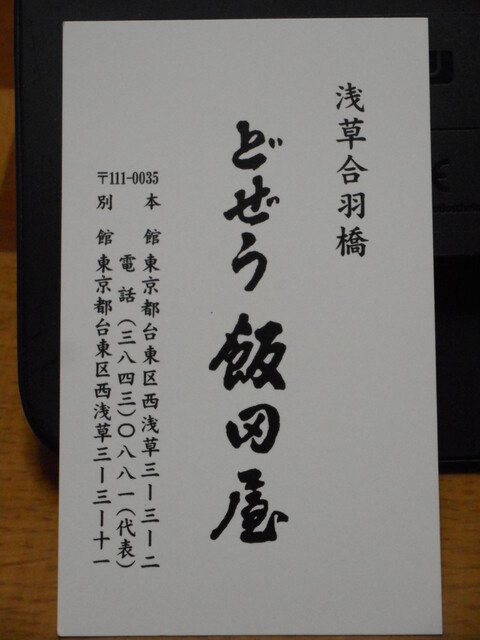 浅草合羽橋
どぜう 飯田屋
本館 東京都台東区西浅草三ー三ー二
電話(三八四三)〇八八一(代表)
〒111-0035
別館 東京都台東区西浅草三ー三ー十一